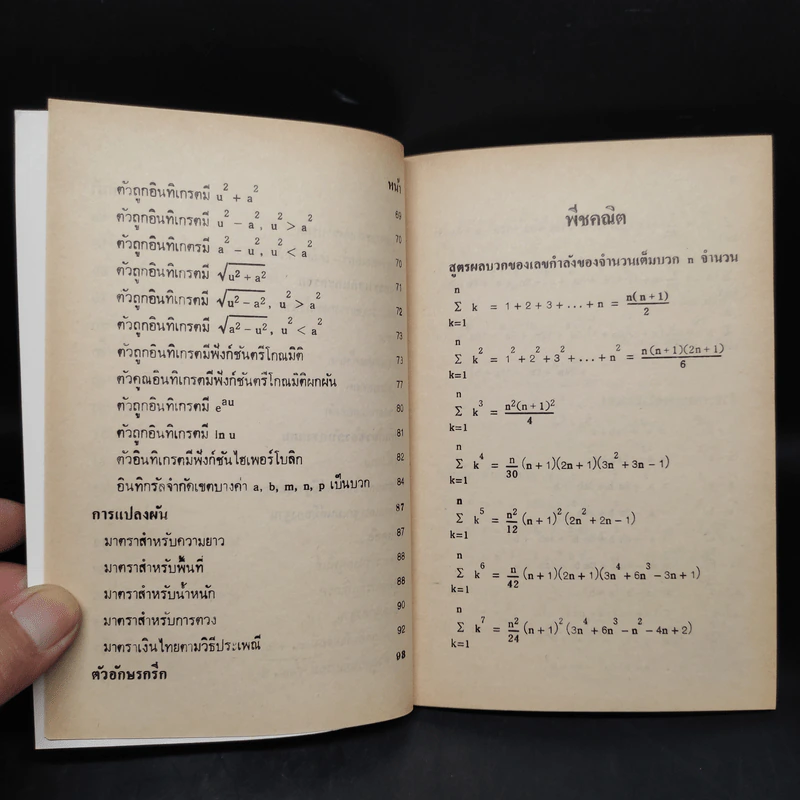 หน้า
ตัวถูกอินทิเกรตมี u² + a² 69
ตัวถูกอินทิเกรตมี u² − a², u² > a² 70
ตัวถูกอินทิเกรตมี a² − u², u² < a² 70
ตัวถูกอินทิเกรตมี √(u² + a²) 71
ตัวถูกอินทิเกรตมี √(u² − a²), u² > a² 72
ตัวถูกอินทิเกรตมี √(a² − u²), u² < a² 73
ตัวถูกอินทิเกรตมีฟังก์ชันตรีโกณมิติ 73
ตัวคูณอินทิเกรตมีฟังก์ชันตรีโกณมิติผกผัน 77
ตัวถูกอินทิเกรตมี e^au 80
ตัวถูกอินทิเกรตมี ln u 81
ตัวอินทิเกรตมีฟังก์ชันไฮเพอร์โบลิก 82
อินทิกรัลจำกัดเขตบางค่า a, b, m, n, p เป็นบวก 84
การแปลงผัน 87
มาตราสำหรับความยาว 87
มาตราสำหรับพื้นที่ 88
มาตราสำหรับน้ำหนัก 88
มาตราสำหรับการตวง 90
มาตราเงินไทยตามวิธีประเพณี 92
ตัวอักษรกรีก 93
พีชคณิต
สูตรผลบวกของเลขกำลังของจำนวนเต็มบวก n จำนวน
n Σ k=1 k = 1 + 2 + 3 + ... + n = n(n+1)/2
n Σ k=1 k² = 1² + 2² + 3² + ... + n² = n(n+1)(2n+1)/6
n Σ k=1 k³ = n²(n+1)²/4
n Σ k=1 k⁴ = n/30 (n+1)(2n+1)(3n² + 3n − 1)
n Σ k=1 k⁵ = n²/12 (n+1)² (2n² + 2n − 1)
n Σ k=1 k⁶ = n/42 (n+1)(2n+1)(3n⁴ + 6n³ − 3n + 1)
n Σ k=1 k⁷ = n²/24 (n+1)² (3n⁴ + 6n³ − n² − 4n + 2)